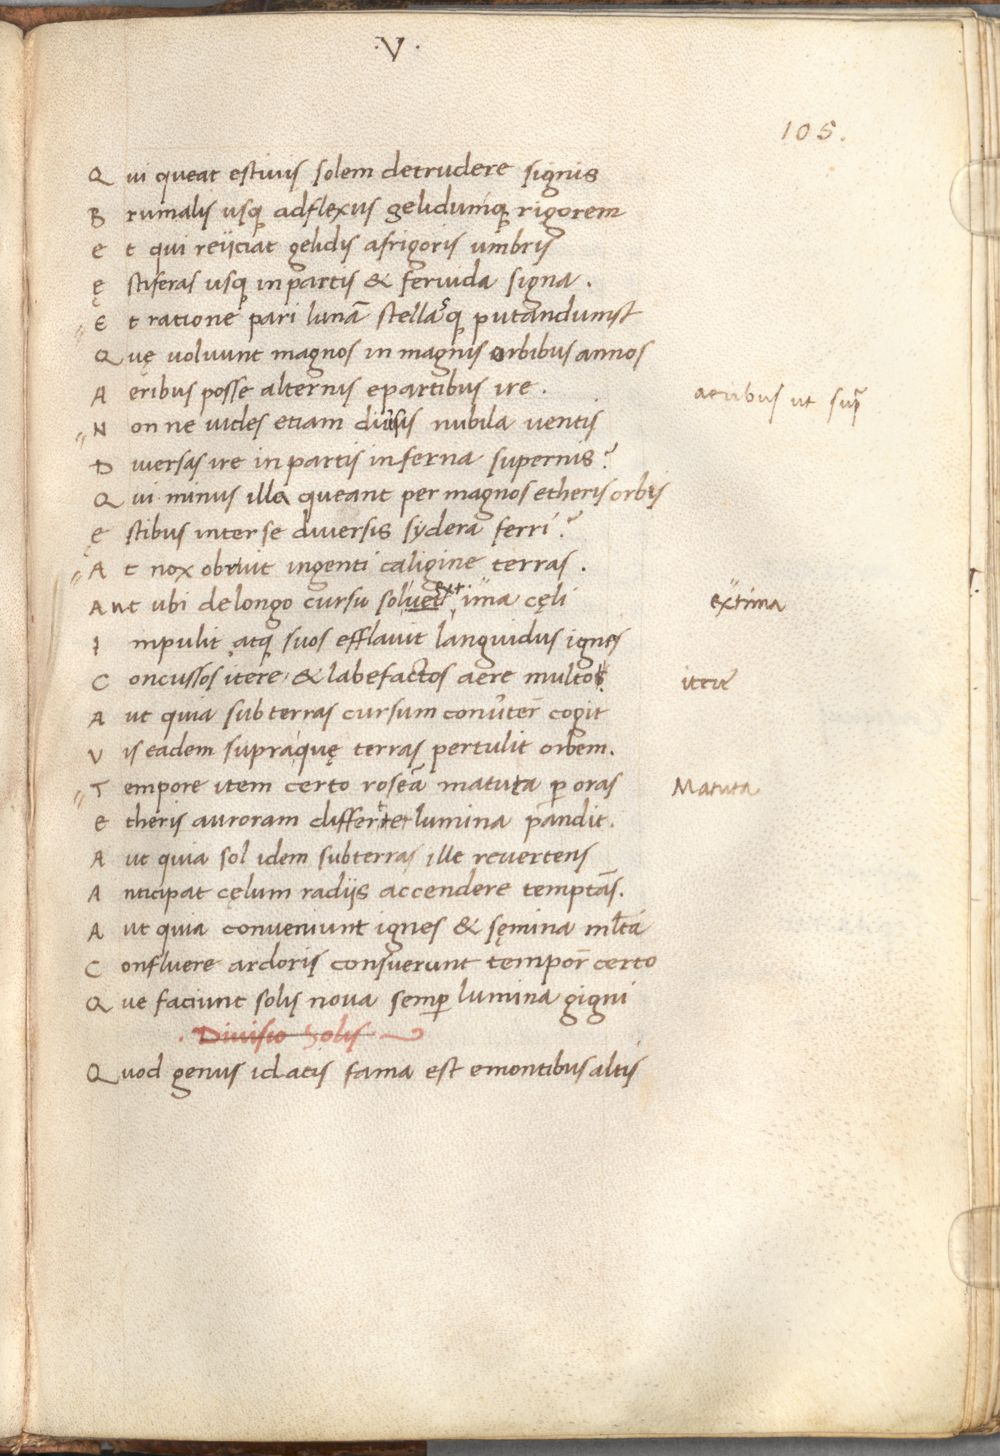 ·V·
105.
Qui queat estiuis solem detrudere signis
Brumalis usq; ad flexus gelidumq; rigorem
et qui reijciat gelidis a frigoris umbris
ęstiferas usq; in partis & feruida signa.
Et ratione pari lunā stellasq; putandumst
Quę uoluunt magnos in magnis orbibus annos
Aeribus posse alternis e partibus ire. aeribus ut supra
Nonne uides etiam diuisis nubila uentis
Diuersas ire in partis inferna supernis?
Qui minus illa queant per magnos etheris orbis
ęstibus inter se diuersis sydera ferri?
At nox obruit ingenti caligine terras.
Aut ubi de longo cursu sol ext. ima cęli extima
Impulit atq; suos efflauit languidus ignes
Concussos itere & labefactos aere multo itere
Aut quia sub terras cursum conuertere cogit
Vis eadem supra quę terras pertulit orbem.
Tempore item certo roseā matuta p oras Matuta
etheris auroram differt et lumina pandit.
Aut quia sol idem sub terras ille reuertens
Anticipat cęlum radijs accendere temptās.
Aut quia conueniunt ignes & sęmina mlta
Confluere ardoris consuerunt tempore certo
Que faciunt solis noua semp lumina gigni
Diuisio Solis
Quod genus idaeis fama est e montibus altis